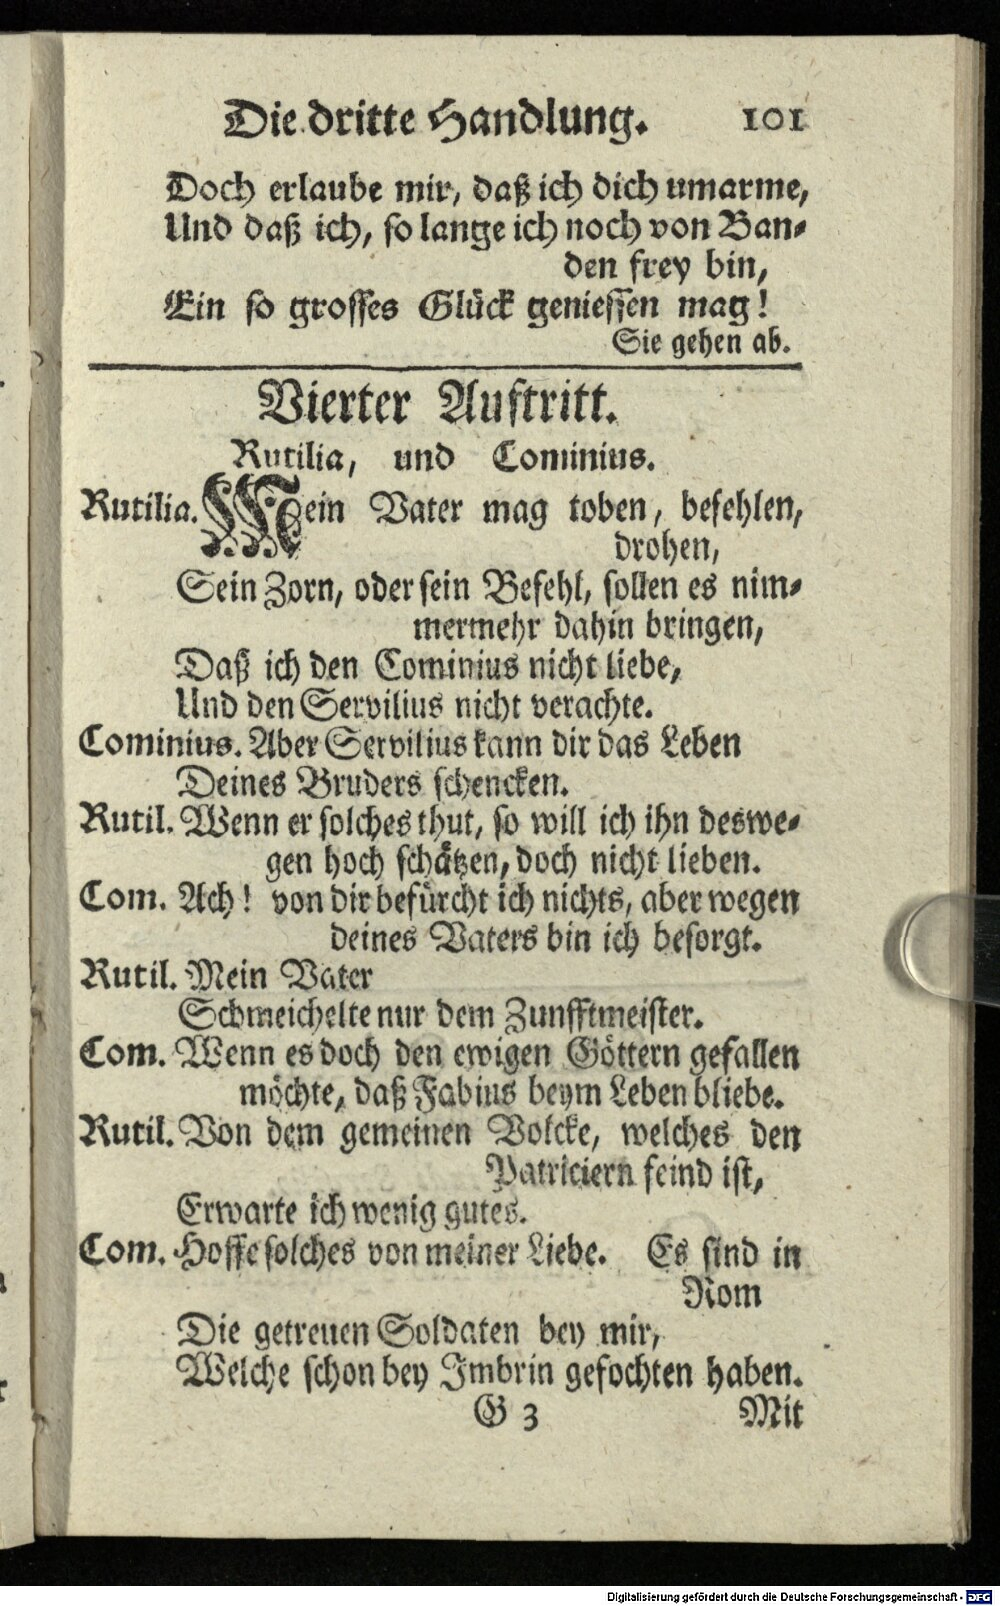 Die dritte Handlung. 101
Doch erlaube mir, daß ich dich umarme,
Und daß ich, so lange ich noch von Ban-
den frey bin,
Ein so grosses Glück geniessen mag!
Sie gehen ab.
Vierter Auftritt.
Rutilia, und Cominius.
Rutilia. Mein Vater mag toben, befehlen,
drohen,
Sein Zorn, oder sein Befehl, sollen es nim-
mermehr dahin bringen,
Daß ich den Cominius nicht liebe,
Und den Servilius nicht verachte.
Cominius. Aber Servilius kann dir das Leben
Deines Bruders schencken.
Rutil. Wenn er solches thut, so will ich ihn deswe-
gen hoch schätzen, doch nicht lieben.
Com. Ach! von dir befürcht ich nichts, aber wegen
deines Vaters bin ich besorgt.
Rutil. Mein Vater
Schmeichelte nur dem Zunfftmeister.
Com. Wenn es doch den ewigen Göttern gefallen
möchte, daß Fabius beym Leben bliebe.
Rutil. Von dem gemeinen Volcke, welches den
Patriciern feind ist,
Erwarte ich wenig gutes.
Com. Hoffe solches von meiner Liebe. Es sind in
Rom
Die getreuen Soldaten bey mir,
Welche schon bey Imbrin gefochten haben.
G 3 Mit
Digitalisierung gefördert durch die Deutsche Forschungsgemeinschaft - DFG